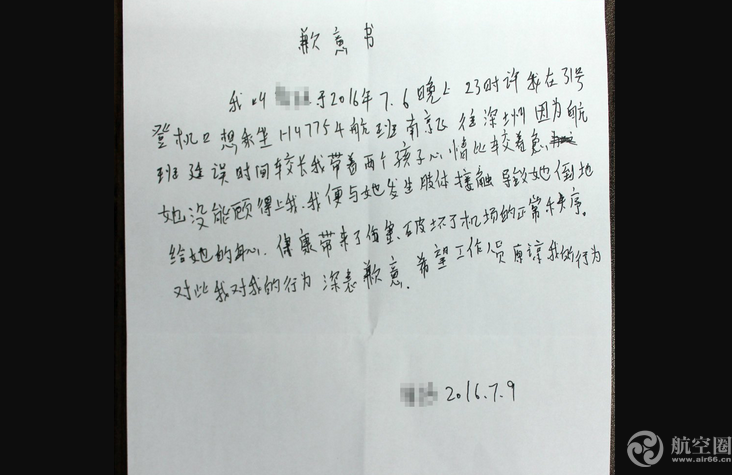 歉意书
我叫 于2016年7.6晚上23时许我在31号
登机口想乘坐HU7754航班南京飞往深圳因为航
班延误时间较长我带着两个孩子心情比较着急、
她没能顾得上我、我便与她发生肢体接触导致她倒地
给她的身心、健康带来了伤害、破坏了机场的正常秩序。
对此我对我的行为深表歉意、希望工作人员原谅我的行为
2016.7.9
航空圈
www.air66.cn